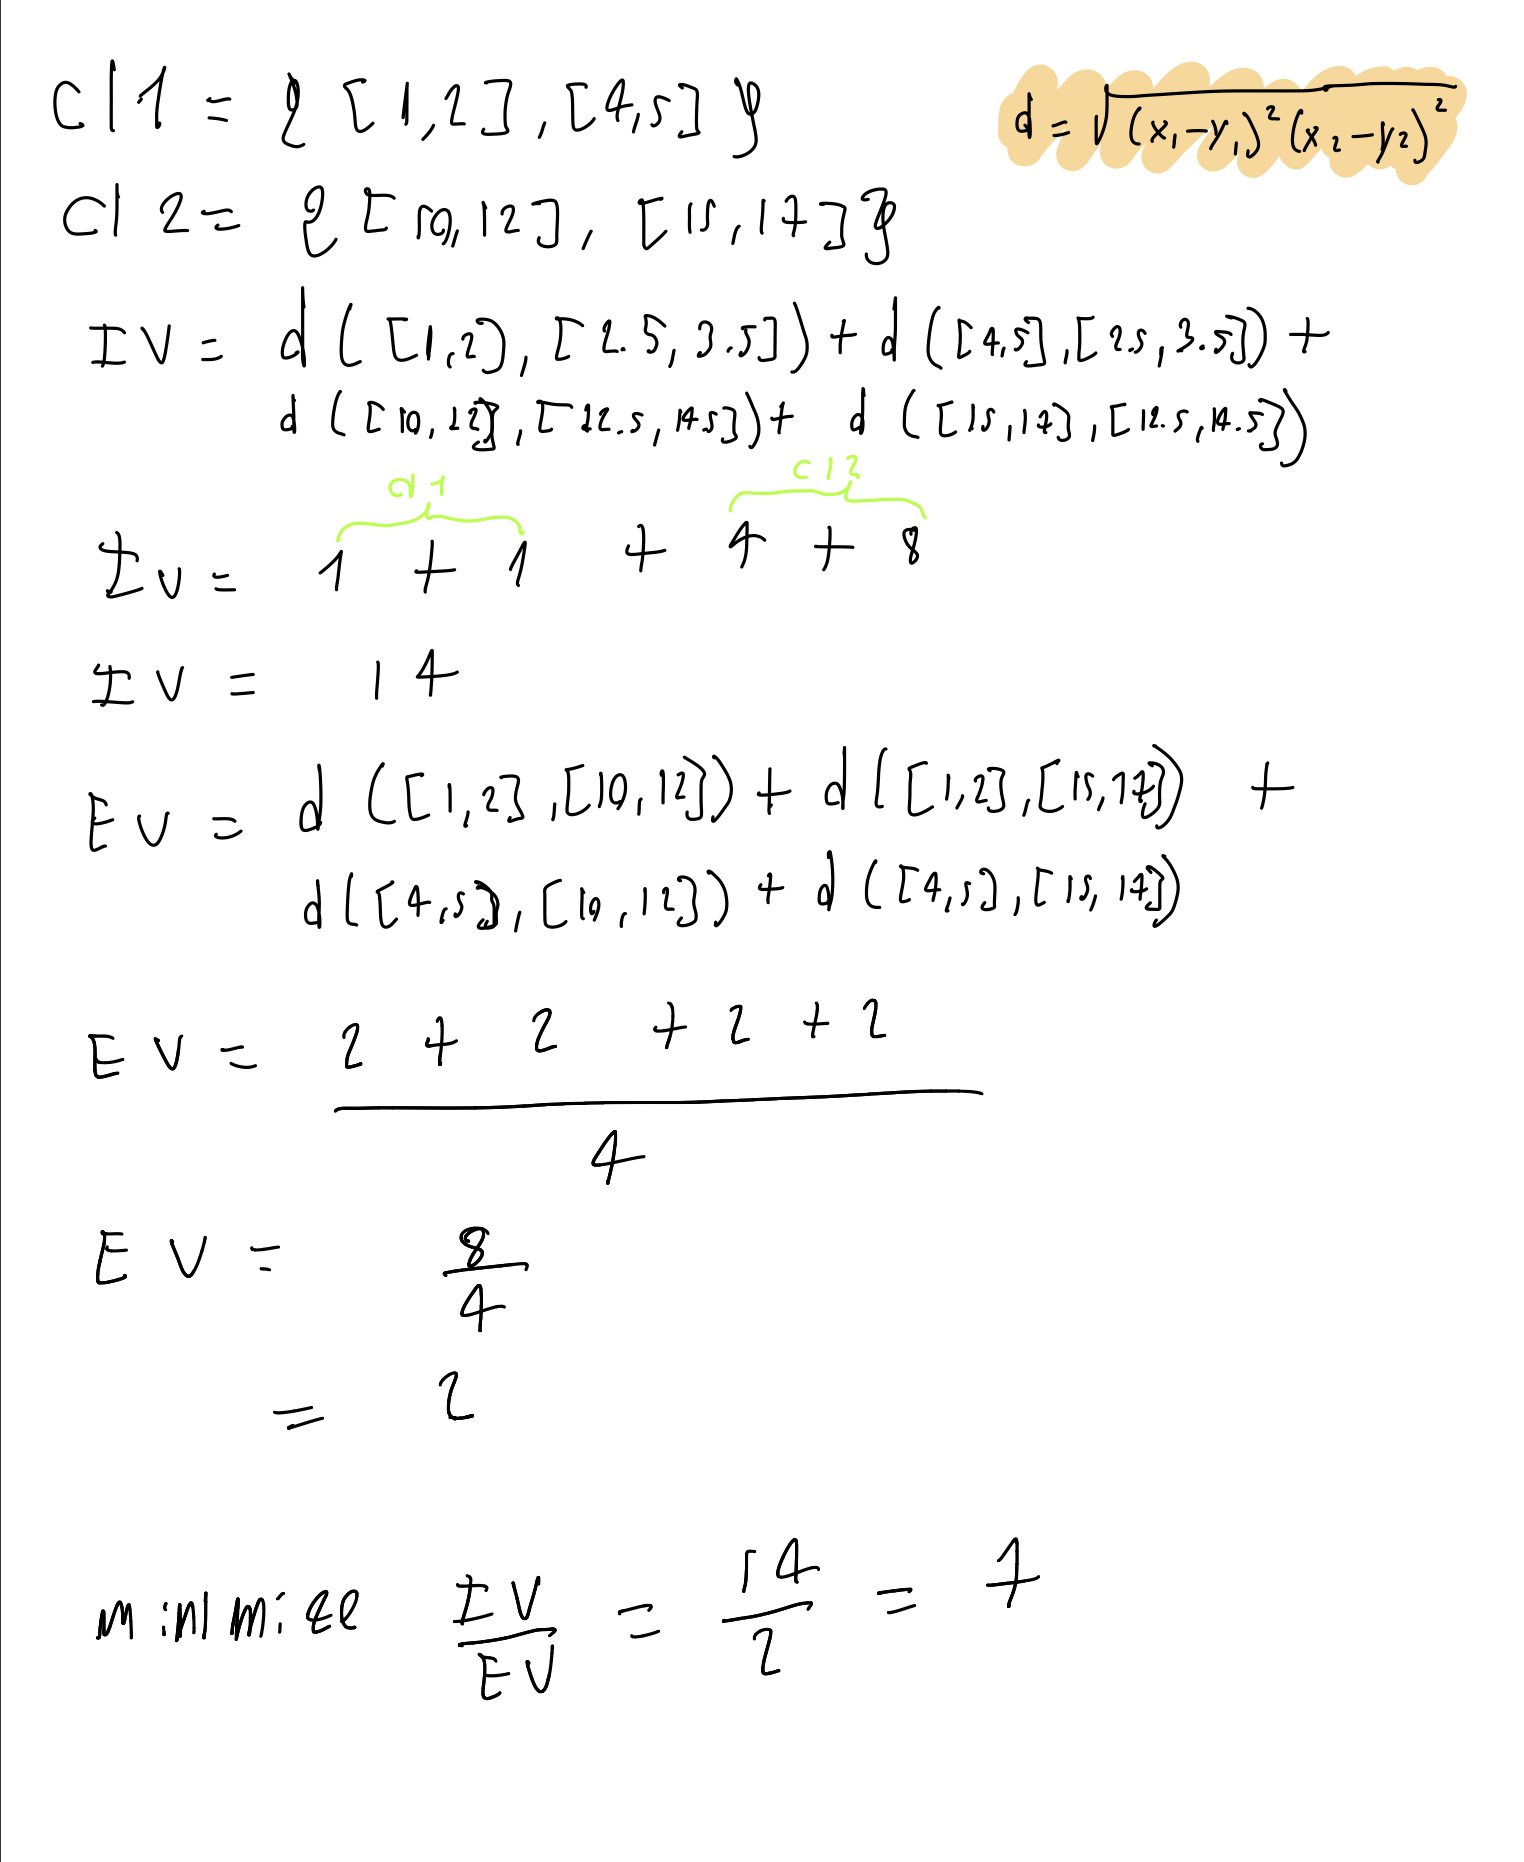 cl1 = { [1,2], [4,5] }
d = √(x₁-y₁)²(x₂-y₂)²
cl 2 = { [10,12], [15,17] }
IV = d ( [1,2), [2.5, 3.5] ) + d ( [4,5], [2.5, 3.5] ) +
d ( [10, 12], [12.5, 14.5] ) + d ( [15, 17], [12.5, 14.5] )
cl1 cl2
IV = 1 + 1 + 4 + 8
IV = 14
EV = d ( [1,2], [10, 12] ) + d ( [1,2], [15, 17] ) +
d ( [4,5], [10, 12] ) + d ( [4,5], [15, 17] )
EV = 2 + 2 + 2 + 2
4
EV = 8
4
= 2
minimize IV/EV = 14/2 = 7